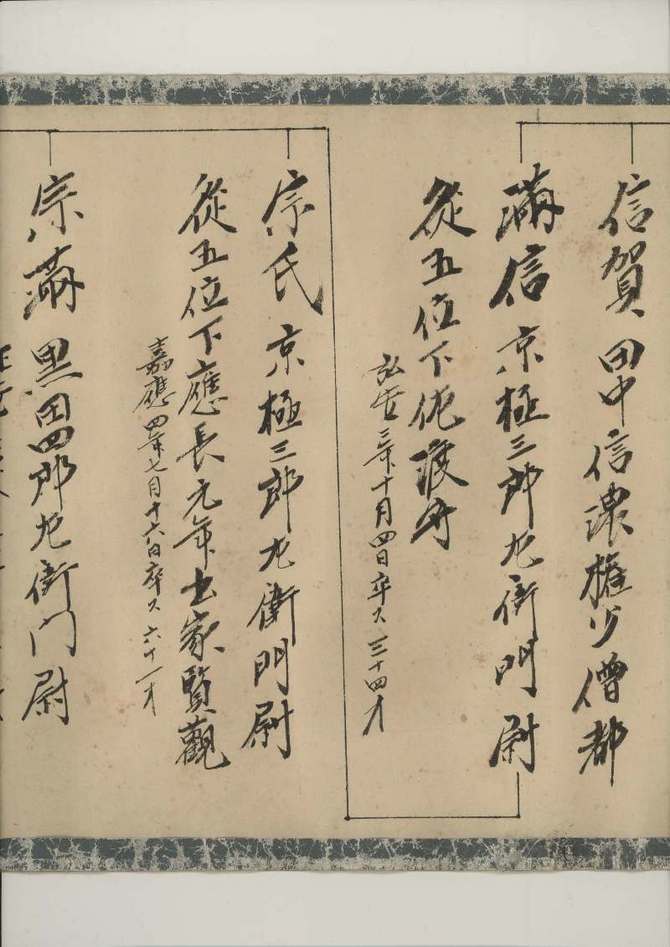 信賀 田中信濃権少僧都
満信 京極三郎左衛門尉
従五位下佐渡守
弘安三年十月四日卒ス 三十四才
宗氏 京極三郎左衛門尉
従五位下應長元年出家賢觀
嘉應四年七月十六日卒ス 六十一才
宗満 黒田四郎左衛門尉